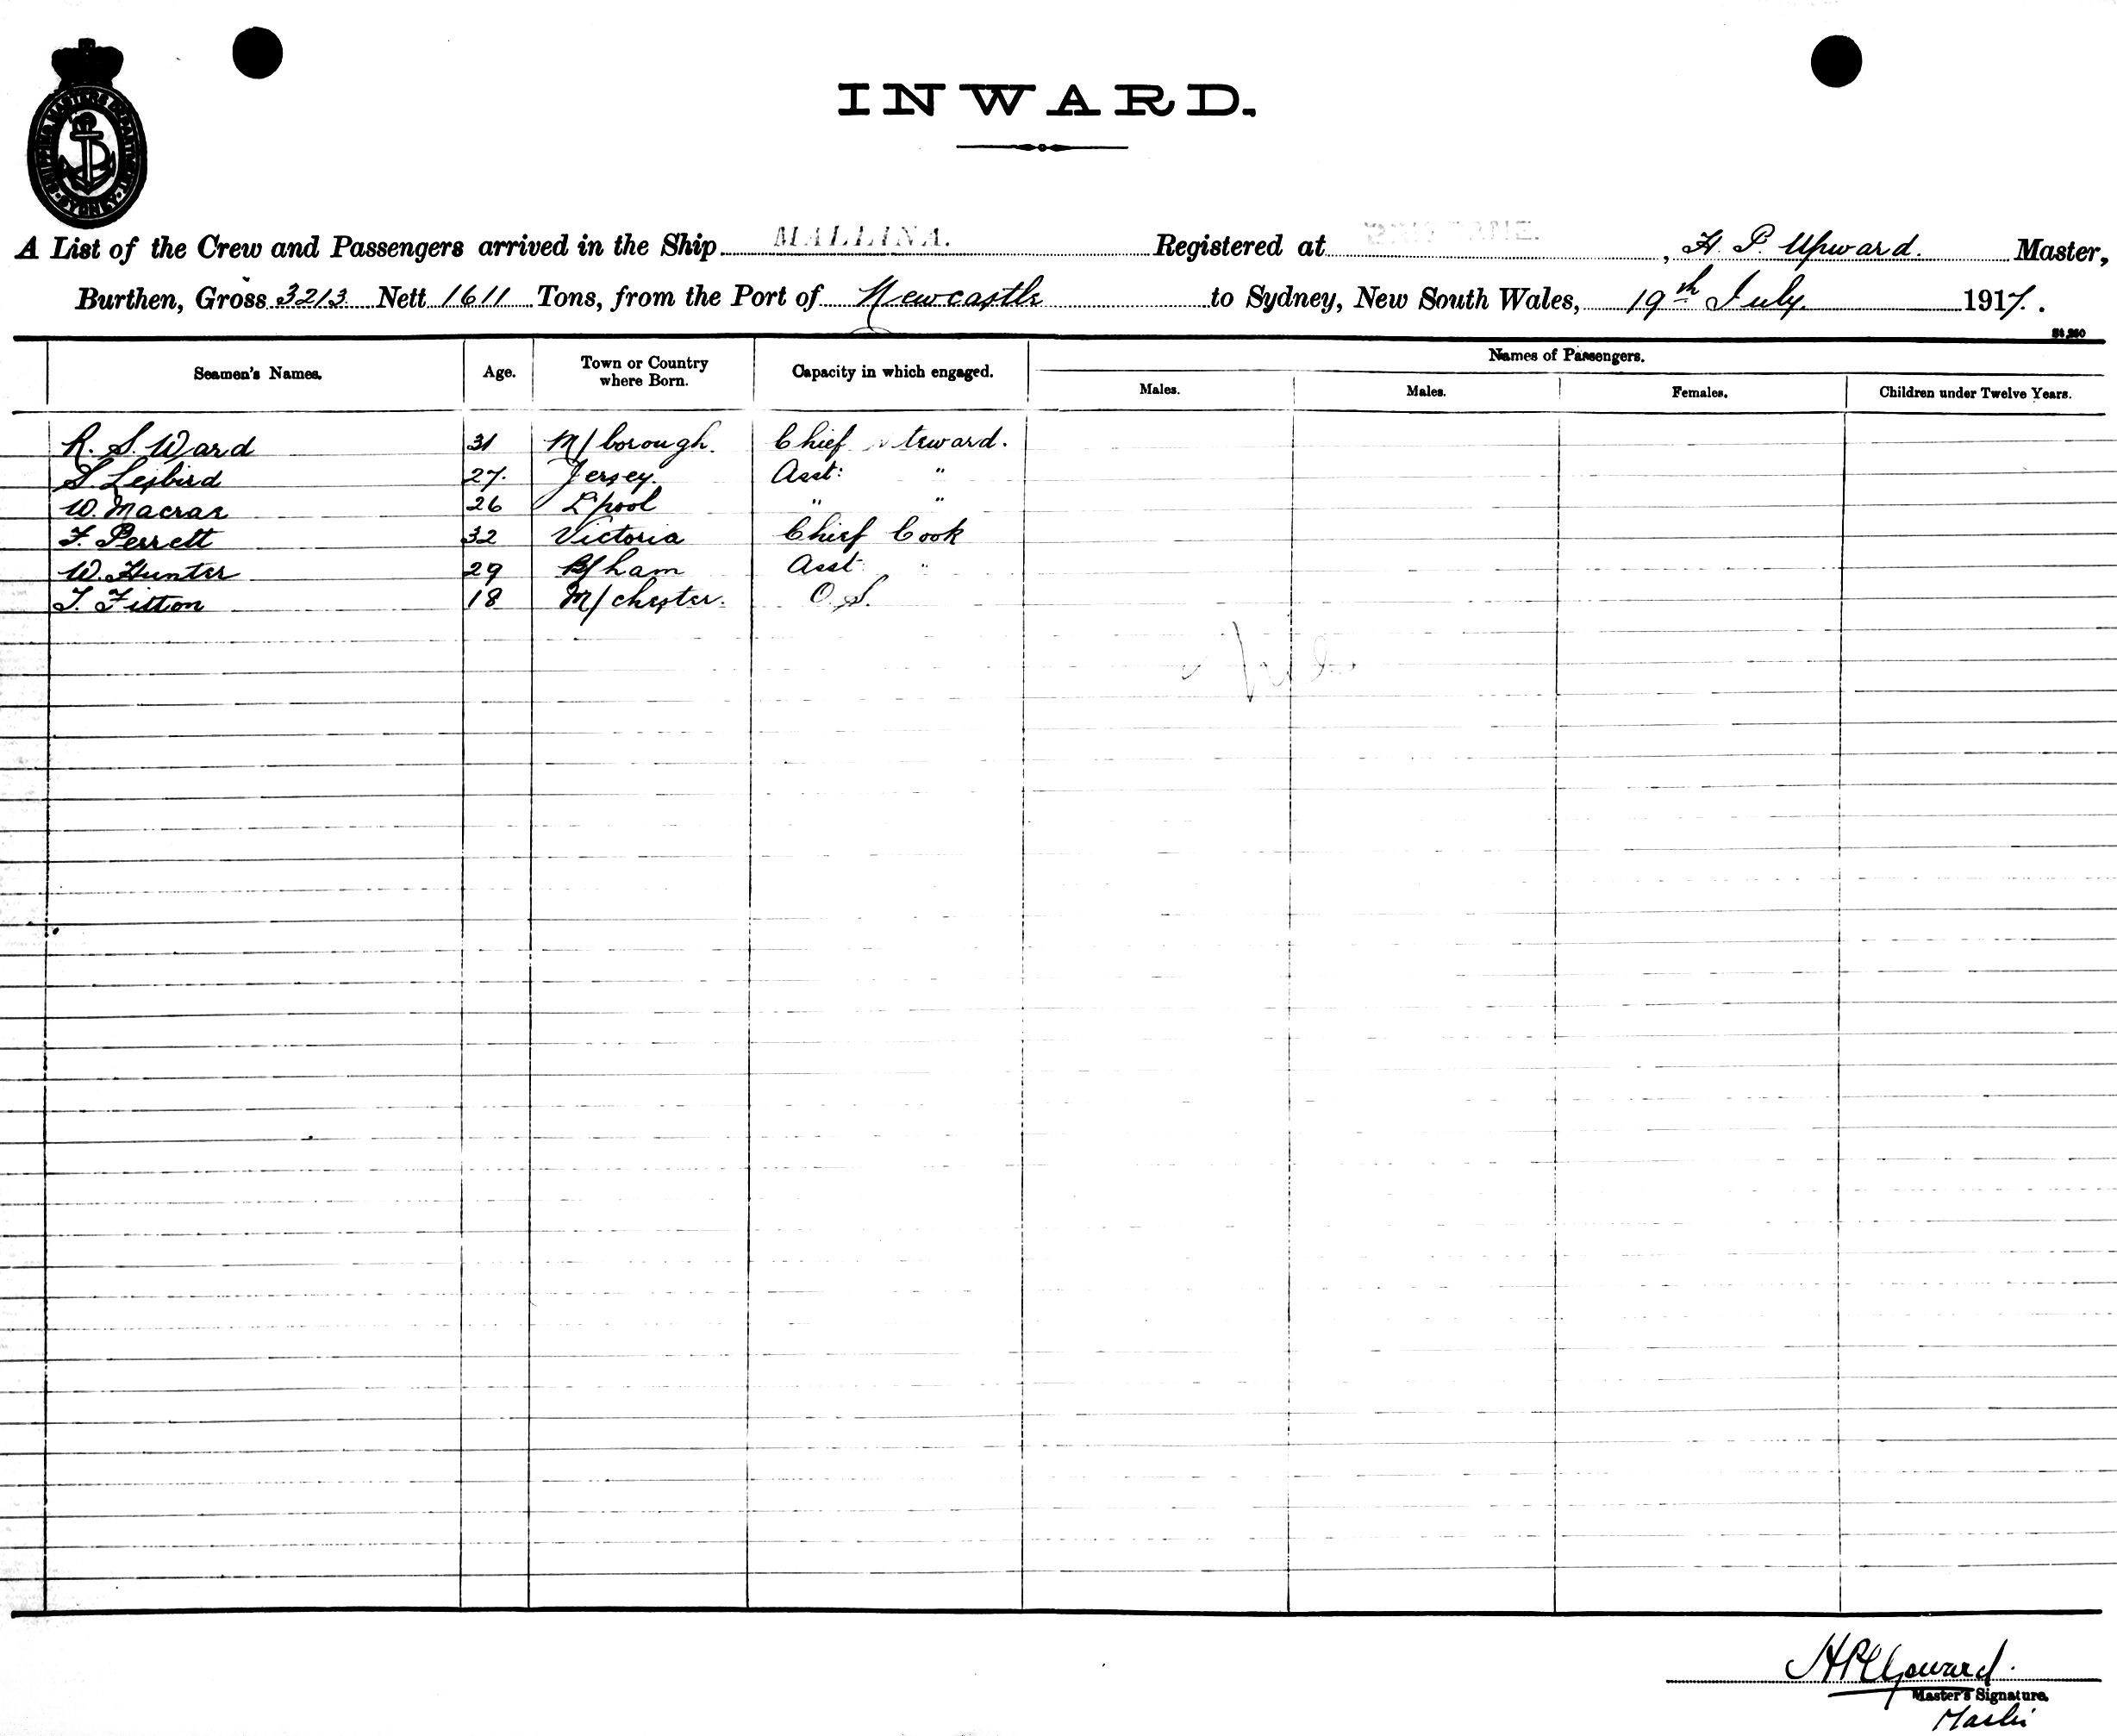 SHIPPING MASTERS DEPARTMENT SYDNEY
INWARD.
A List of the Crew and Passengers arrived in the Ship MALLINA. Registered at , H. P. Upward. Master,
Burthen, Gross 3213 Nett 1611 Tons, from the Port of Newcastle to Sydney, New South Wales, 19th July 1917.
Names of Passengers.
Seamen's Names. Age. Town or Country where Born. Capacity in which engaged. Males. Males. Females. Children under Twelve Years.
R. S. Ward 31 M/borough. Chief Steward.
S 27. Jersey. Asst: "
W. Macrae 26 L'pool " "
F. Perrett 32 Victoria Chief Cook
W. Hunter 29 B/ham Asst "
T. Fitton 18 M/chester. O. S.
HP Upward.
Master's Signature.